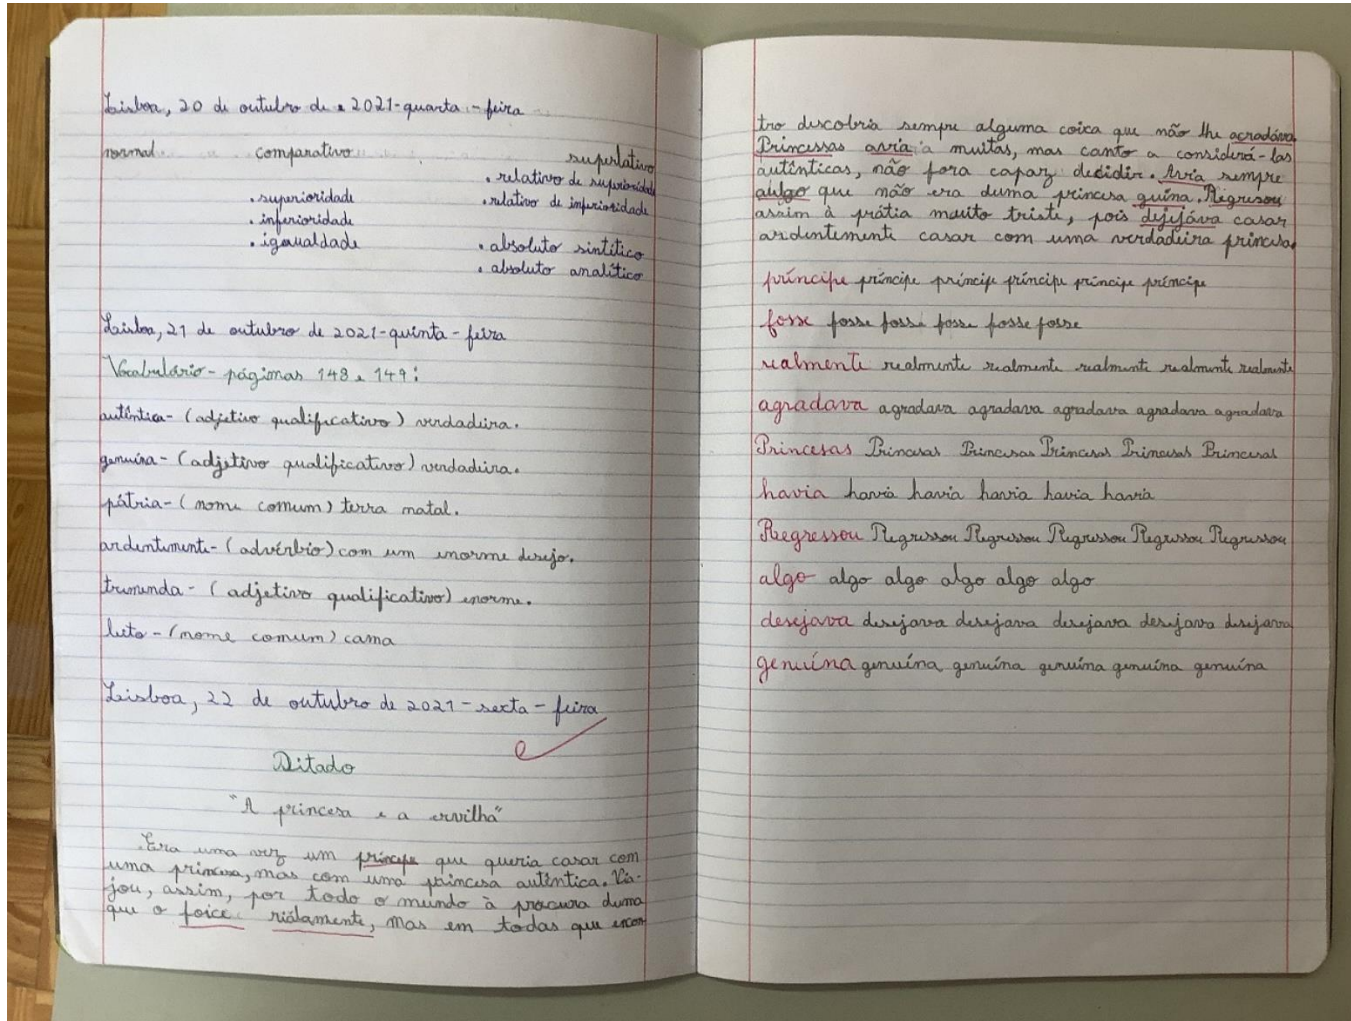 Lisboa, 20 de outubro de 2021-quarta-feira
normal comparativo superlativo
. relativo de superioridade
. superioridade . relativo de inferioridade
. inferioridade
. igaualdade . absoluto sintítico
. absoluto analítico
Lisboa, 21 de outubro de 2021-quinta-feira
Vocabulário - páginas 148 e 149:
autêntica - (adjetivo qualificativo) verdadeira.
genuína - (adjetivo qualificativo) verdadeira.
pátria - (nome comum) terra natal.
ardentemente - (advérbio) com um enorme desejo.
tremenda - (adjetivo qualificativo) enorme.
leito - (nome comum) cama
Lisboa, 22 de outubro de 2021 - sexta-feira
Ditado
"A princesa e a ervilha"
Era uma vez um príncipe que queria casar com
uma princesa, mas com uma princesa autêntica. Via-
jou, assim, por todo o mundo à procura duma
que o foice riálamente, mas em todas que encon
tro discobria sempre alguma coixa que não lhe acradáva.
Princessas avia a muitas, mas canto a considerá-las
autênticas, não fora capaz decidir. Avia sempre
aulgo que não era duma princesa guína. Rigresou
assim à prátia muito triste, pois dejijáva casar
ardentemente casar com uma verdadeira princesa.
príncipe príncipe príncipe príncipe príncipe príncipe
fosse fosse fosse fosse fosse fosse
realmente realmente realmente realmente realmente realmente
agradava agradava agradava agradava agradava agradava
Princesas Princesas Princesas Princesas Princesas Princesas
havia havia havia havia havia havia
Regressou Regressou Regressou Regressou Regressou Regressou
algo algo algo algo algo algo
desejava desejava desejava desejava desejava desejava
genuína genuína genuína genuína genuína genuína